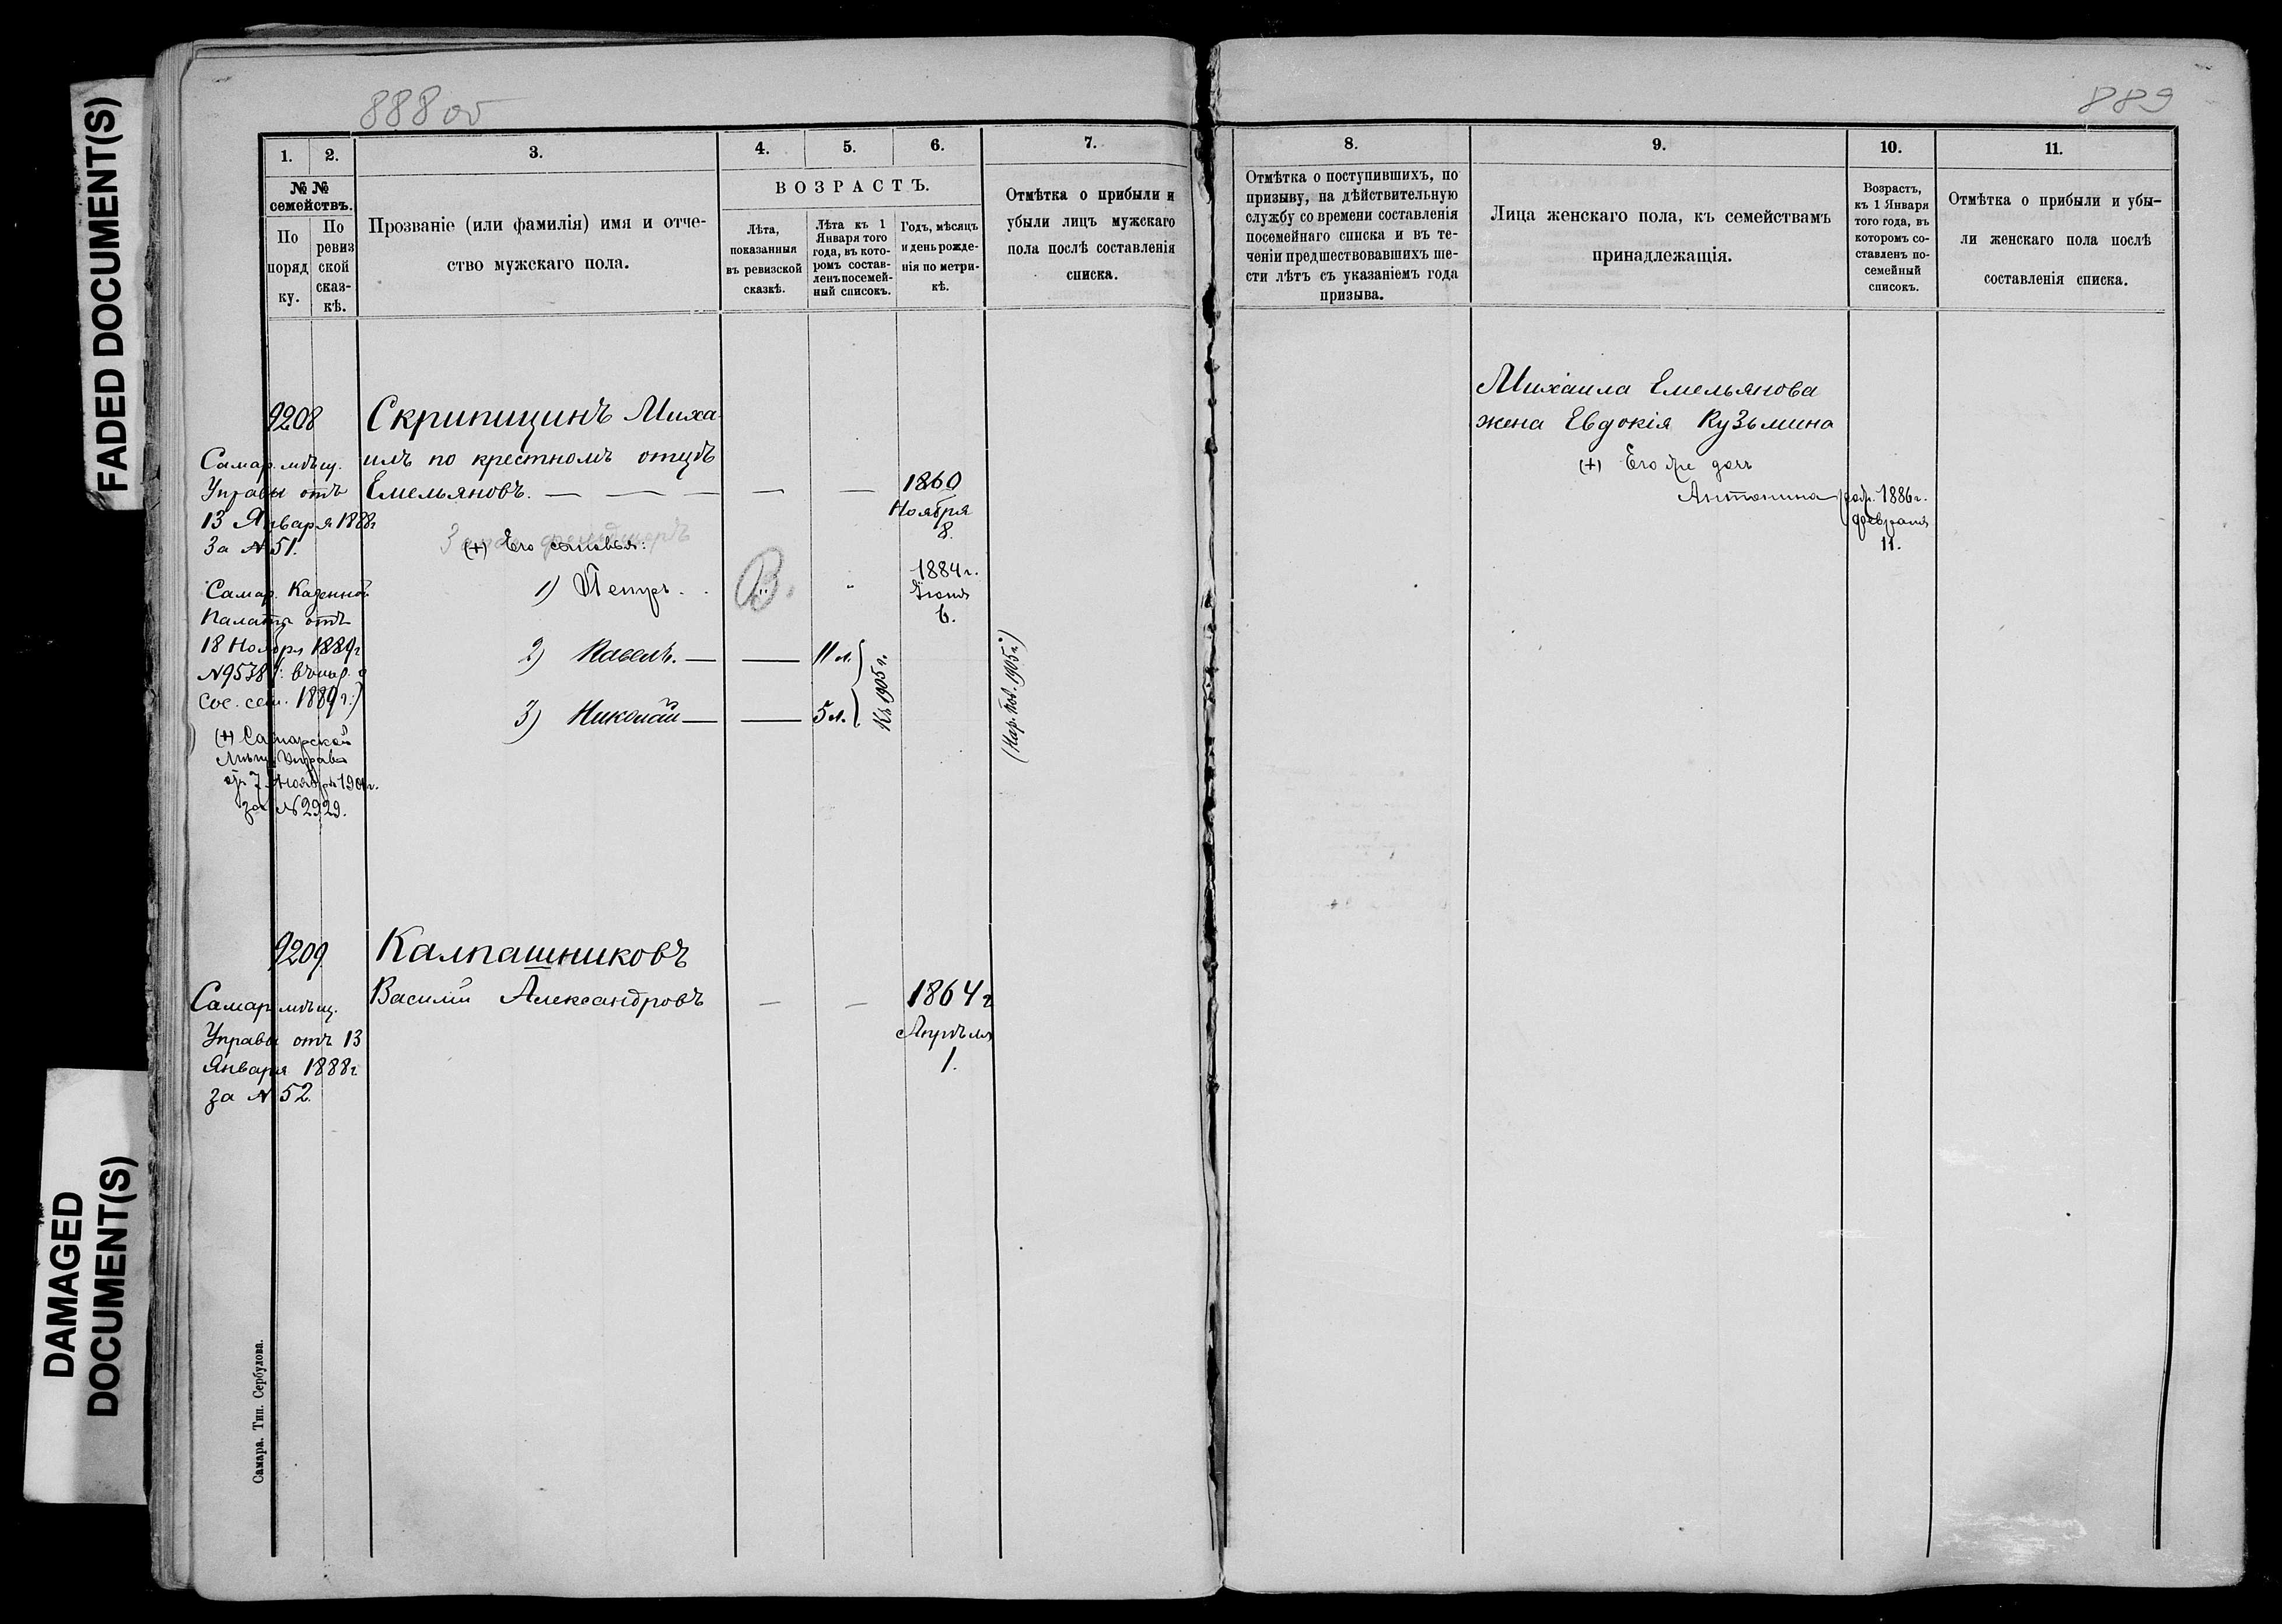 FADED DOCUMENT(S)
DAMAGED
DOCUMENT(S)
888 об
1.
2.
3.
4.
5.
6.
7.
№ №
семействъ.
По
поряд
ку.
По
ревиз
ской
сказ-
кѣ.
Прозваніе (или фамилія) имя и отче-
ство мужскаго пола.
ВОЗРАСТЪ.
Лѣта,
показанныя
въ ревизской
сказкѣ.
Лѣта къ 1
Января того
года, въ кото-
ромъ состав-
ленъ посемей-
ный списокъ.
Годъ, мѣсяцъ
и день рожде-
нія по метри-
кѣ.
Отмѣтка о прибыли и
убыли лицъ мужскаго
пола послѣ составленія
списка.
9208
Самар. мѣщ.
Управы отъ
13 Января 1888г
За № 51.
Самар. Казенной
Палаты отъ
18 Ноября 1889г
№ 9538
1889 г.:)
(+) Самарской
Мѣщ. Управы
от 7 Ноября
за № 2929.
Скрипицинъ Миха-
илъ по крестномъ отцѣ
Емельяновъ.
1860
Ноября
8.
(+) Его сыновья:
1) Петръ.
В.
1884 г.
Іюня
6.
2) Павелъ.
11 л.
3) Николай
5 л.
Къ 1905 г.
9209
Самар мѣщ.
Управы отъ 13
Января 1888г
за № 52.
Калпашниковъ
Василій Александровъ
1864 г
Апрѣля
1.
Самара. Тип. Сербулова.
889
8.
9.
10.
11.
Отмѣтка о поступившихъ, по
призыву, на дѣйствительную
службу со времени составленія
посемейнаго списка и въ те-
ченіи предшествовавшихъ ше-
сти лѣтъ съ указаніемъ года
призыва.
Лица женскаго пола, къ семействамъ
принадлежащія.
Возрастъ,
къ 1 Января
того года, въ
которомъ со-
ставленъ по-
семейный
списокъ.
Отмѣтка о прибыли и убы-
ли женскаго пола послѣ
составленія списка.
Михаила Емельянова
жена Евдокія Кузьмина
(+) Его же дочь
Антонина
1886 г.
февраля
11.